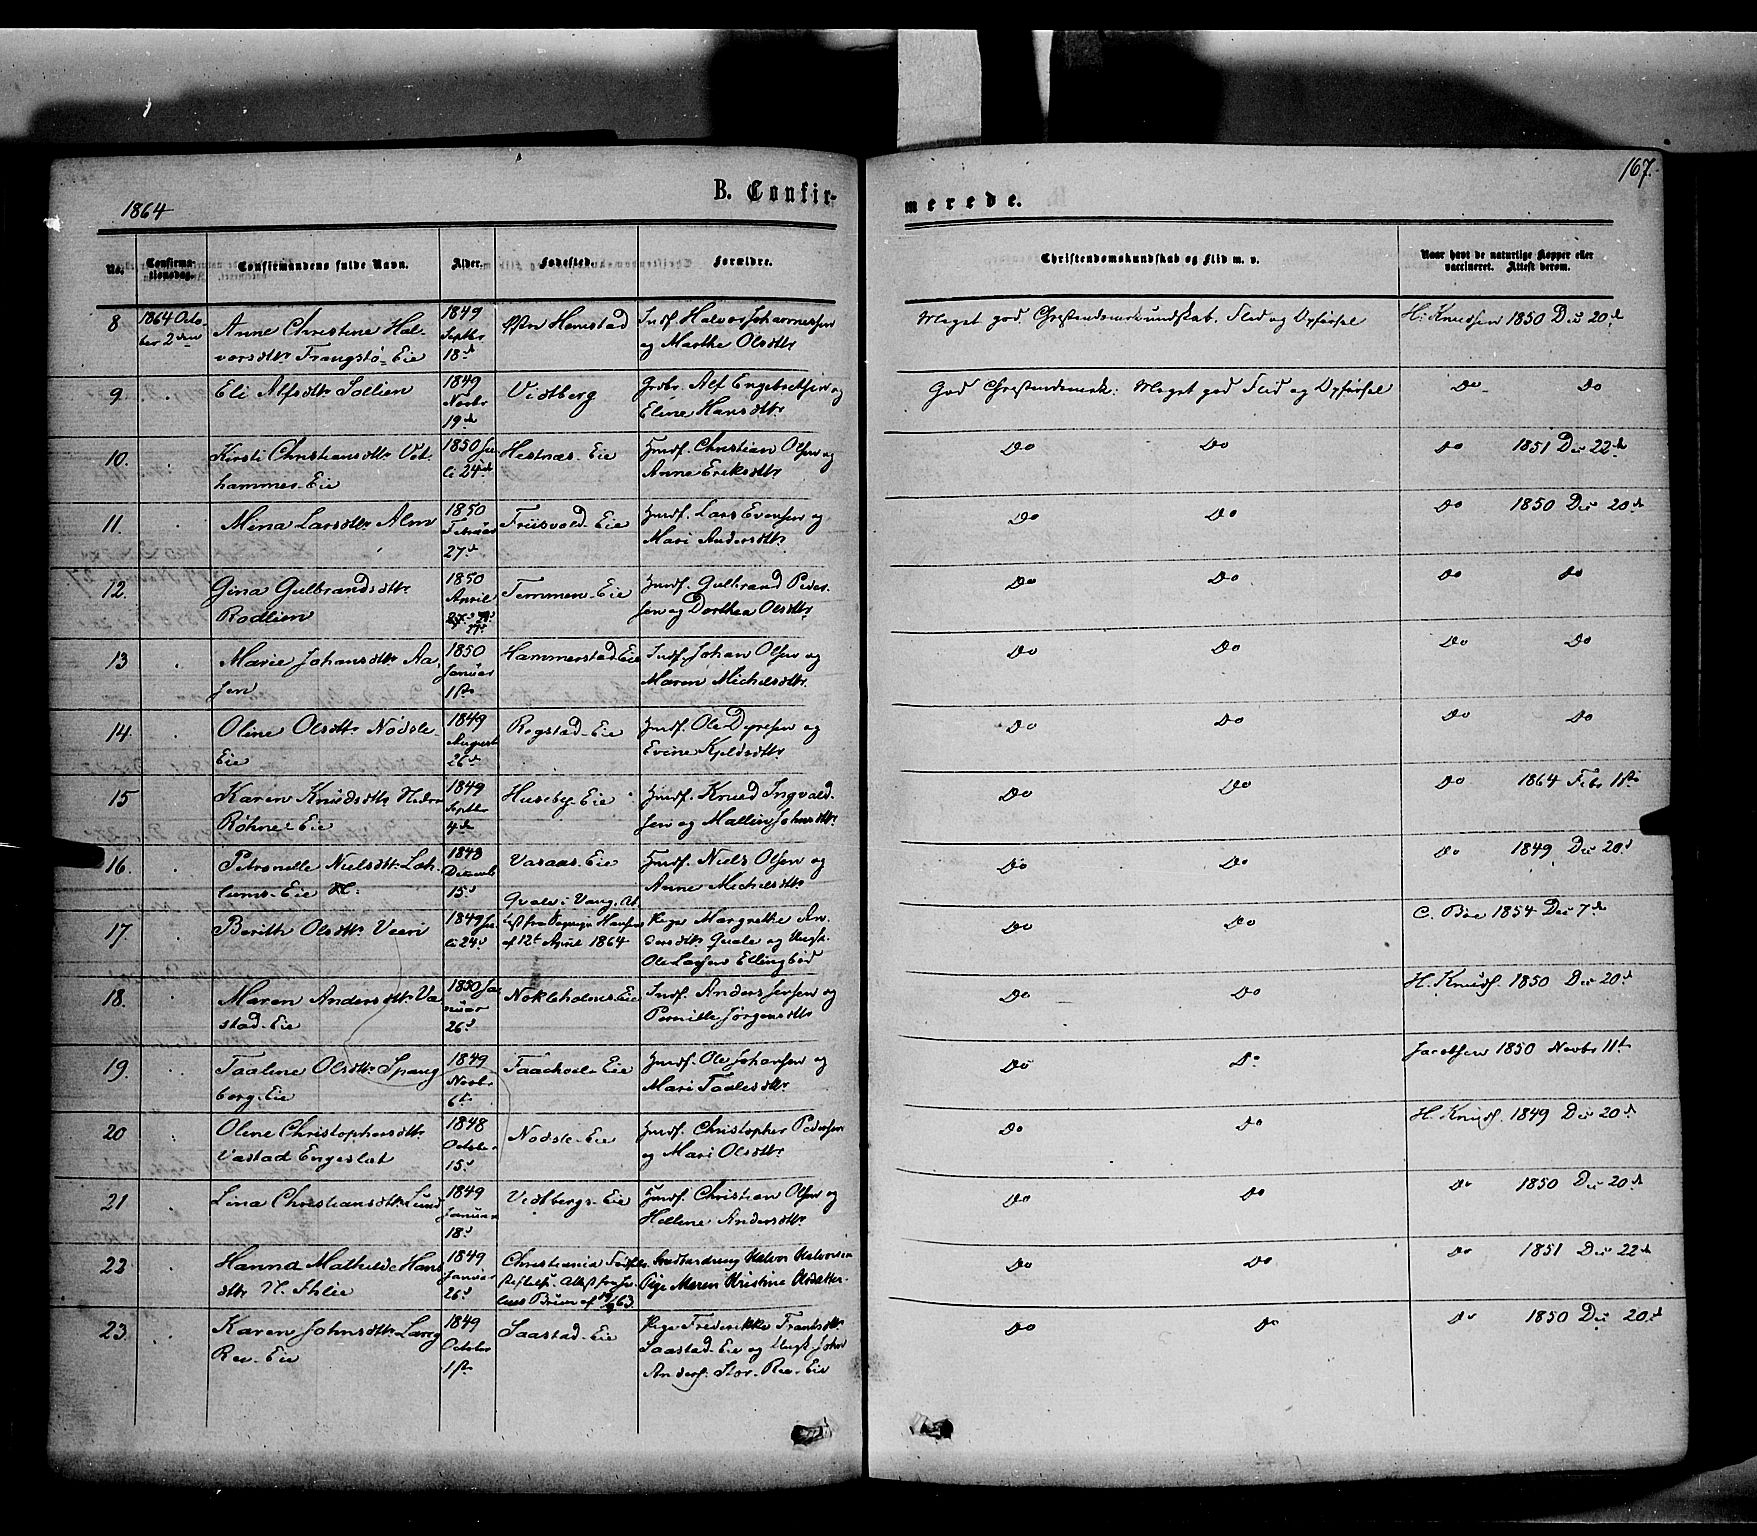 167.
1864
B. Confirmerede.
No. Confirmationsdag. Confirmandens fulde Navn. Alder. Fødested. Forældre. Christendomskundskab og Flid m. v. Naar havt de naturlige Kopper eller vaccineret. Attest derom.
8 1864 October 2den Anne Christine Halvorsdtr Trangstø-Eie 1849 Septbr 18d Østr Hemstad Indf. Halvor Johannessen og Marthe Olsdtr Meget god Christendomskundskab. Flid og Opførsel H. Knudsen 1850 Dec 20d
9 Eli Alfsdtr Sollien 1849 Novbr 19d Vidberg Grdbr. Alf Engebretsen og Eline Hansdtr God Christendomsk: Meget god Flid og Opførsel Do Do
10. Kirsti Christiansdtr Vethammer-Eie 1850 Juli 24d Hestnæs-Eie Huusf. Christian Olsen og Anne Eriksdtr Do Do Do 1851 Dec 22d
11. Mina Larsdtr Alm 1850 Februar 27d Friisvold-Eie Huusf. Lars Evensen og Mari Andersdtr Do Do Do 1850 Dec 20d
12. Gina Gulbrandsdtr Rodlien 1850 April Temmen-Eie Huusf. Gulbrand Pedersen og Dorthea Olsdtr Do Do Do Do
13 Marie Johansdtr Aasen 1850 Januar 1ste Hammerstad Eie Indf. Johan Olsen og Maren Michelsdtr. Do Do Do Do
14. Oline Olsdtr Nødsle Eie 1849 August 26d Rogstad-Eie Huusf. Ole Dyresen og Evine Kjeldsdtr Do Do Do Do
15 Karen Knudsdtr Nedre Røhne-Eie 1849 Septbr 4de Huseby-Eie Huusf. Knud Ingvaldsen og Mallin Johnsdtr. Do Do Do 1864 Febr 1ste
16. Petronelle Nielsdtr 1848 Decemb 15d Vasaas-Eie Huusf. Niels Olsen og Anne Michelsdtr Do Do Do 1849 Dec 20d
17 Berith Olsdtr Veeri 1849 Juli 24d Qvale i Vang. af 12te April 1864 Pige Margrethe Andersdtr Quale og Ungk. Ole Larsen Ellingbød Do Do C. Boe 1854 Dec 7de
18. Maren Andersdtr Vastad-Eie 1850 Januar 26d Nokleholms Eie Indf. Anders Jensen og Pernille Jørgensdtr Do Do H. Knuds. 1850 Dec 20d
19. Taaline Olsdtr Spangborg-Eie 1849 Novbr 6t Taachosle Eie Huusf. Ole Johansen og Mari Taalesdtr Do Do Jacobsen 1850 Novbr 11te
20 Oline Christophersdtr Vastad Engeslet 1848 October 15d Nødsle-Eie Huusf. Christopher Pedersen og Mari Olsdtr. Do Do H. Knuds. 1849 Dec 20d
21 Lina Christiansdtr Lund 1849 Januar 18d Vidbergs-Eie Huusf. Christian Olsen og Helene Andersdtr Do Do Do 1850 Dec 20d
22 Hanna Mathilde Hansdtr N. Ihlie 1849 Januar 26d Christiania Fødselsstiftelse. Attest fra Bruun af 63. Halvor Halvorsen Pige Maren Kristine Olsdatter Do Do Do 1851 Dec 22d
23. Karen Johnsdtr Lang Ree-Eie 1849 October 1ste Saastad-Eie Pige Frederikke Frantsdtr Saastad-Eie og Ungk. John Anders. Stor-Ree-Eie Do Do Do 1850 Dec 20d